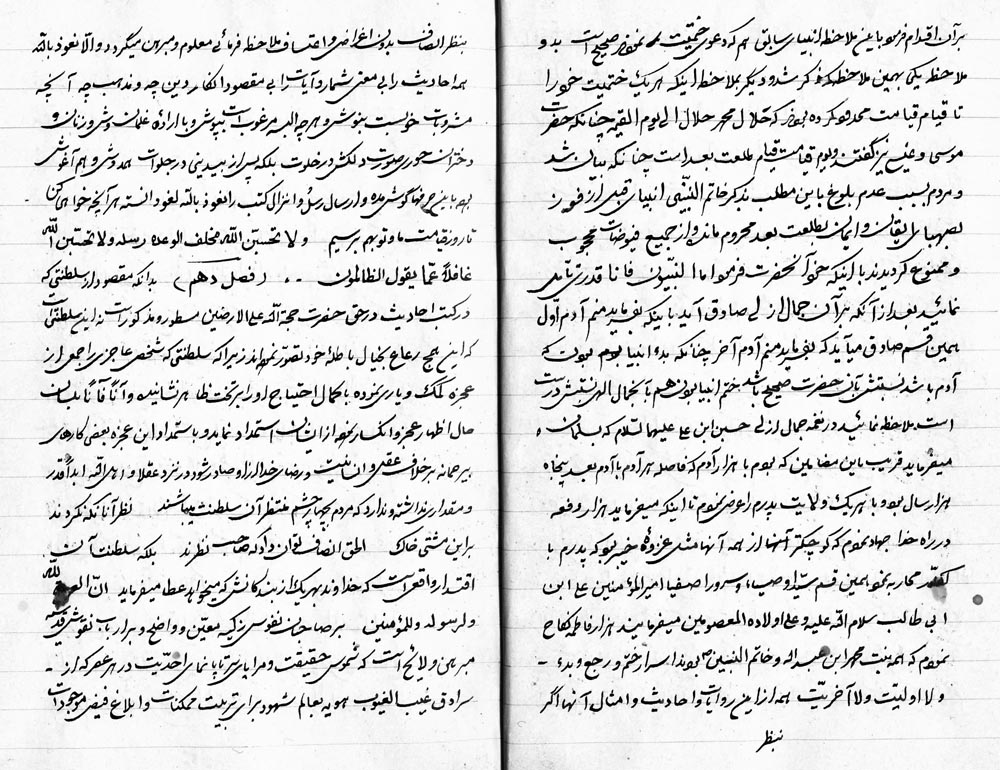 بر آن اقدام فرمود با عین ملاحظه انبیای سابق هم که دعوی ختمیت نمود صحیح است بدو
ملاحظه یکی بهمین ملاحظه که ذکر شد و دیگر بملاحظه اینکه هر یک ختمیت خود را
تا قیام قیامت محدود کرده بود که حلال محمد حلال الی یوم القیمه چنانکه حضرت
موسی و عیسی نیز گفتند و یوم قیامت قیام طلعت بعد است چنانکه بیان شد
و مردم بسبب عدم بلوغ باین مطلب بذکر خاتم النبیین انبیای قبل از فوز
بصهبای ایقان و ایمان بطلعت بعد محروم مانده و از جمیع فیوضات محجوب
و ممنوع گردیدند با اینکه خود آنحضرت فرمود اما النبیون فانا قدری تأمل
نمائید بعد از آنکه بر آن جمال ازلی صادق آید باینکه بفرماید منم آدم اول
همین قسم صادق میآید که بفرماید منم آدم آخر چنانکه بدء انبیا بودن که
آدم باشد نسبتش بآن حضرت صحیح باشد ختم انبیا بودن هم بآنجمال الهی نسبتش درست
است ملاحظه نمائید در نغمه جمال ازلی حسین ابن علی علیهما السلام که بسلمان
میفرماید قریب باین مضامین که بودم با هزار آدم که فاصله هر آدم با آدم بعد پنجاه
هزار سال بود و با هر یک ولایت پدرم را عرض نمودم تا اینکه میفرماید هزار دفعه
در راه خدا جهاد نمودم که کوچکتر آنها از همه آنها مثل غزوه خیبر بود که پدرم با
کفار محاربه نمود بهمین قسم سید اوصیا و سرور اصفیا امیر المؤمنین علی ابن
ابی طالب سلام الله علیه و علی اولاده المعصومین میفرمایند هزار فاطمه نکاح
نمودم که همه بنت محمد ابن عبدالله و خاتم النبیین بودند اسرار ختم و رجع و بدء
و لا اولیت و لا آخریت همه از این روایات و احادیث و امثال آنها اگر
بنظر
بنظر انصاف بدون اغراض و اعتساف ملاحظه فرمائی معلوم و مبرهن میگردد و الا نعوذ بالله
همه احادیث را بی معنی شمار و آیات را بی مقصود انگار دین چه و مذهب چه آنچه
مشروبات خواست بنوش و هر چه البسه مرغوب است بپوش و با اراده غلمان وش و زنان و
دختران حوری صورت دلکش در خلوت بلکه پس از بیدینی در جلوات همدوش و هم آغوش
بود باین حرفها گوش مده و ارسال رسل و انزال کتب را نعوذ بالله لغو دانسته هر آنچه خواهی کن
تا روز قیامت ما و تو بهم برسیم و لا تحسبن الله مخلف الوعده رسله و لا تحسبن الله
غافلا عما یقول الظالمون .. (فصل دهم) بدانکه مقصود از سلطنتی که
در کتب احادیث در حق حضرت حجة الله علی الارضین مسطور و مذکور است نه این سلطنتی است
که این همج رعاع بخیال باطله خود تصور نموده‌اند زیرا که سلطنتی که شخص عاجزی راجمعی از
عجزه کمک و یاری نموده با کمال احتیاج او را بر تخت ظاهر نشانیده و آنا فآنا بلسان
حال اظهار عجز و انکسار نموده از ایشان استمداد نماید و باستمداد این عجزه بعضی کارهای
بیرحمانه بر خلاف عقل و انسانیت و رضای خدا از او صادر شود در نزد عقلا و اهل الله ابدا قدر
و مقداری نداشته و ندارد که مردم بچهار چشم منتظر آن سلطنت میباشند نظر آنانکه نکردند
بر این مشتی خاک الحق انصاف توان داد که صاحب نظرند بلکه سلطنت آن
اقتدار واقعی است که خداوند بهر یک از بندگانش که میخواهد عطا میفرماید ان العزة لله
و لرسوله و للمؤمنین بر صاحبان نفوس زکیه معین و واضح و بر ارباب نفوس قدسیه
مبرهن و لائح است که شموس حقیقت و مرایای سرتاپا نمای احدیت در هر عصر که از
سرادق غیب الغیوب هویه بعالم شهود برای تربیت ممکنات و ابلاغ فیض موجودات